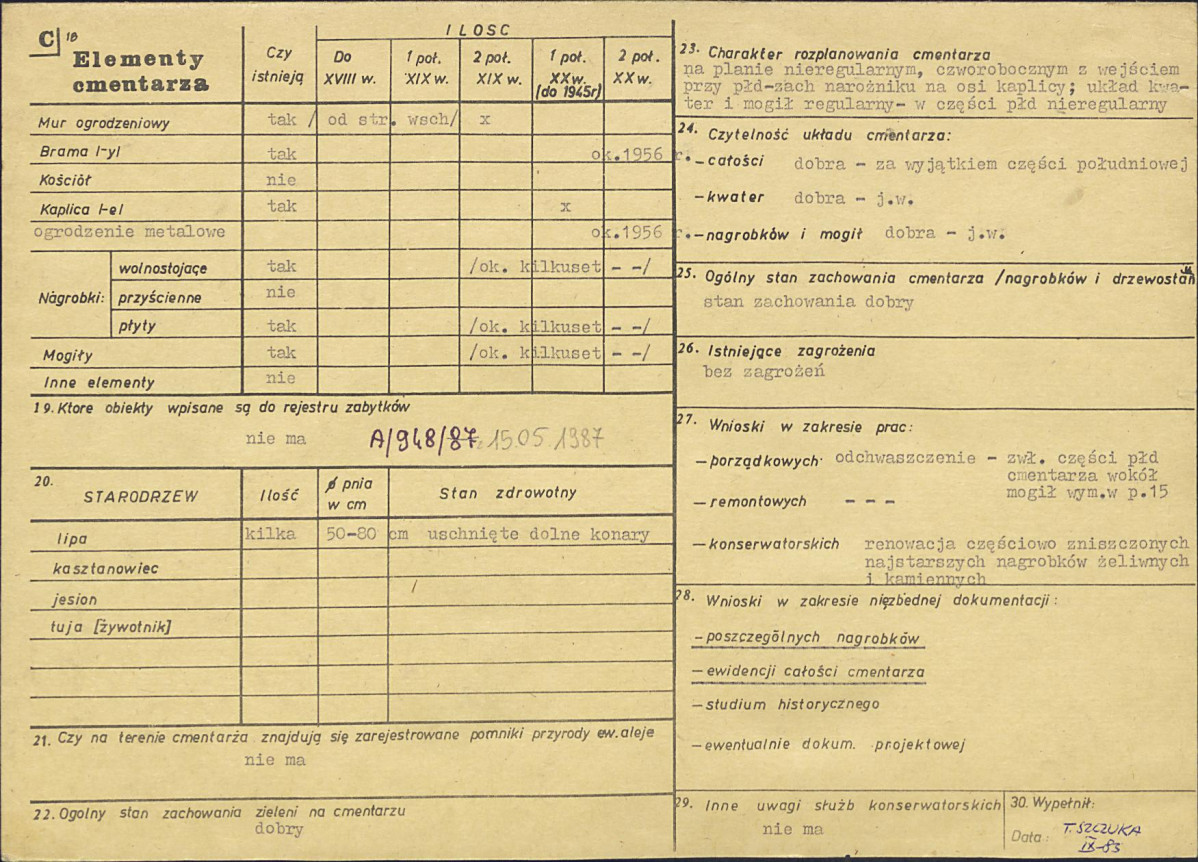 C 18
Elementy
cmentarza
Czy istnieją
ILOSC
Do XVIII w.
1 poł. XIX w.
2 poł. XIX w.
1 poł. XX w. (do 1945r)
2 poł. XX w.
Mur ogrodzeniowy tak / od str. wsch/ x
Brama I-yl tak ok.1956 r.
Kościół nie
Kaplica I-el tak x
ogrodzenie metalowe ok.1956 r.
Nagrobki: wolnostojące tak /ok. kilkuset - -/
przyścienne nie
płyty tak /ok. kilkuset - -/
Mogiły tak /ok. kilkuset - -/
Inne elementy nie
19. Ktore obiekty wpisane są do rejestru zabytków
nie ma A/948/87 z 15.05.1987
20. STARODRZEW Ilość ø pnia w cm Stan zdrowotny
lipa kilka 50-80 cm uschnięte dolne konary
kasztanowiec
jesion /
tuja [żywotnik]
21. Czy na terenie cmentarża znajdują się zarejestrowane pomniki przyrody ew. aleje
nie ma
22. Ogolny stan zachowania zieleni na cmentarzu
dobry
23. Charakter rozplanowania cmentarza
na planie nieregularnym, czworobocznym z wejściem
przy płd-zach narożniku na osi kaplicy; układ kwa-
ter i mogił regularny- w części płd nieregularny
24. Czytelność układu cmentarza:
- całości dobra - za wyjątkiem części południowej
- kwater dobra - j.w.
- nagrobków i mogił dobra - j.w.
25. Ogólny stan zachowania cmentarza /nagrobków i drzewostan
stan zachowania dobry
26. Istniejące zagrożenia
bez zagrożeń
27. Wnioski w zakresie prac:
- porządkowych odchwaszczenie - zwł. części płd
cmentarza wokół
mogił wym.w p.15
- remontowych - - -
- konserwatorskich renowacja częściowo zniszczonych
najstarszych nagrobków żeliwnych
i kamiennych
28. Wnioski w zakresie niezbednej dokumentacji:
- poszczególnych nagrobków
- ewidencji całości cmentarza
- studium historycznego
- ewentualnie dokum. projektowej
29. Inne uwagi służb konserwatorskich
nie ma
30. Wypełnił:
T. SZCZUKA
Data: IX-83